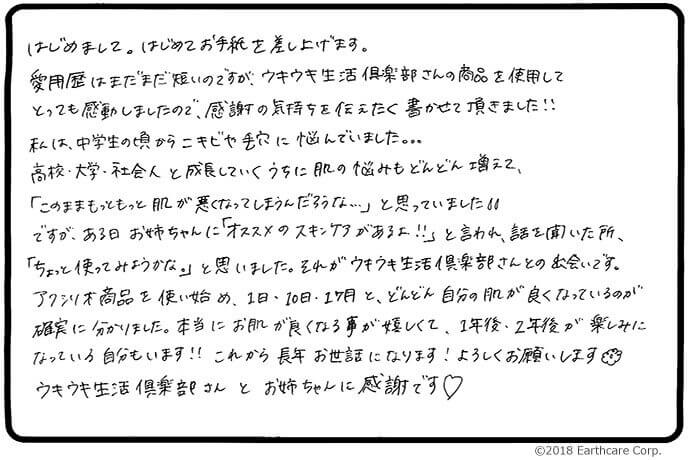 はじめまして。はじめてお手紙を差し上げます。
愛用歴はまだまだ短いのですが、ウキウキ生活倶楽部さんの商品を使用して
とっても感動しましたので、感謝の気持ちを伝えたく書かせて頂きました!!
私は、中学生の頃からニキビや毛穴に悩んでいました。。。
高校・大学・社会人と成長していくうちに肌の悩みもどんどん増えて、
「このままもっともっと肌が悪くなってしまうんだろうな…」と思っていました!!
ですが、ある日お姉ちゃんに「オススメのスキンケアがあるよ!!」と言われ、話を聞いた所、
「ちょっと使ってみようかな。」と思いました。それがウキウキ生活倶楽部さんとの出会いです。
アクシリオ商品を使い始め、1日・10日・1ヶ月と、どんどん自分の肌が良くなっているのが
確実に分かりました。本当にお肌が良くなる事が嬉しくて、1年後・2年後が楽しみに
なっている自分もいます!!これから長年お世話になります!よろしくお願いします
ウキウキ生活倶楽部さんとお姉ちゃんに感謝です♡
©2018 Earthcare Corp.